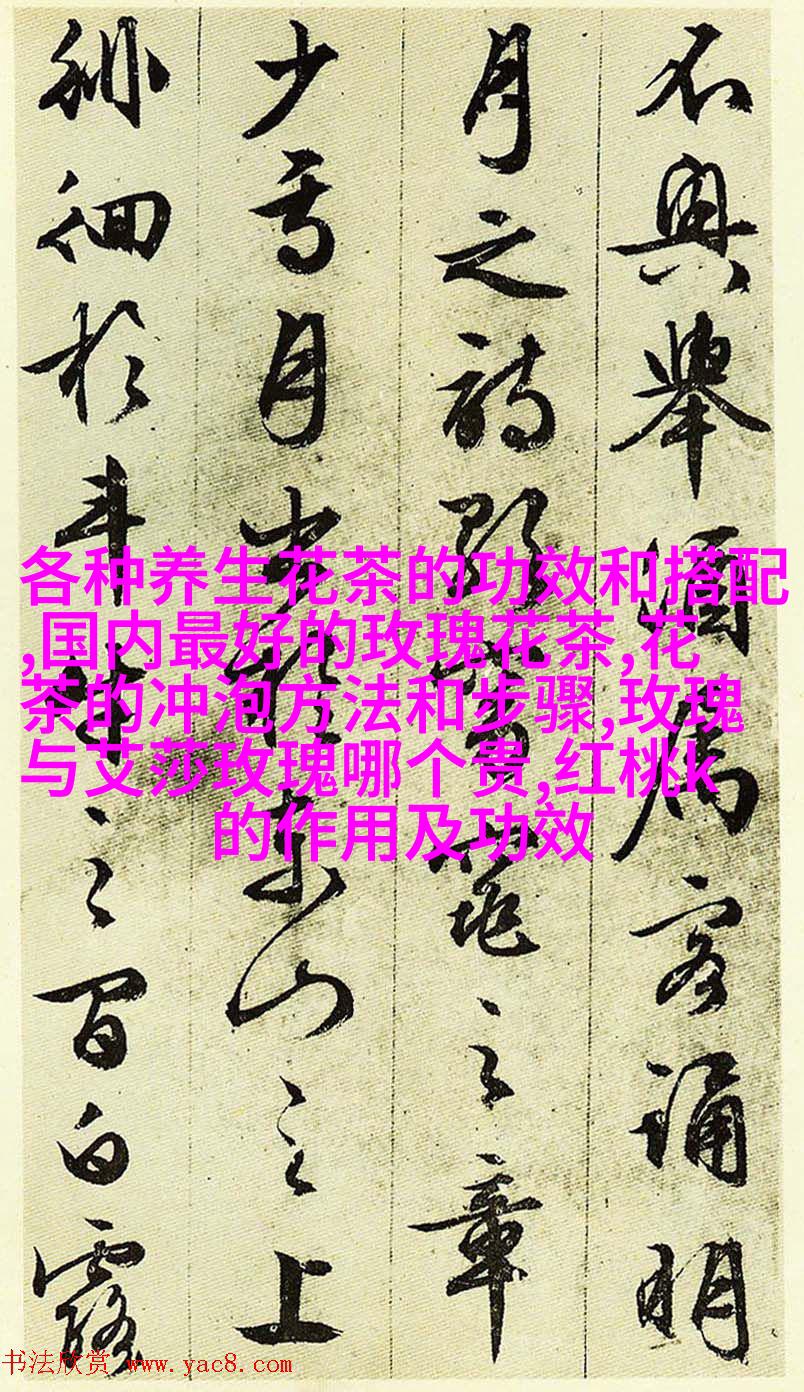 不興舉酒屬客誦明
月之詩歌窈窕之章
少焉月出於東山之上
徘徊於斗牛之間白露
各种养生花茶的功效和搭配
,国内最好的玫瑰花茶,花
茶的冲泡方法和步骤,玫瑰
与艾莎玫瑰哪个贵,红桃k
的作用及功效
书法欣赏 www.yac8.com